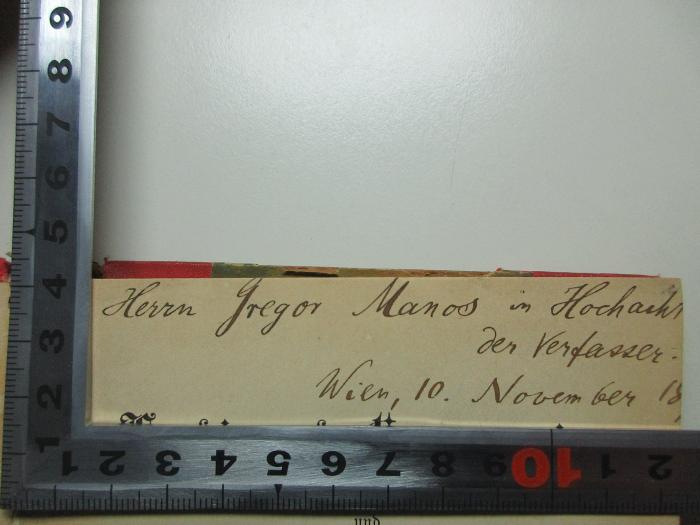 Herrn Gregor Manos in Hochacht
der Verfasser.
Wien, 10. November 18
9
8
7
6
5
4
3
2
1
1 2 3 4 5 6 7 8 9 10 1 2
und